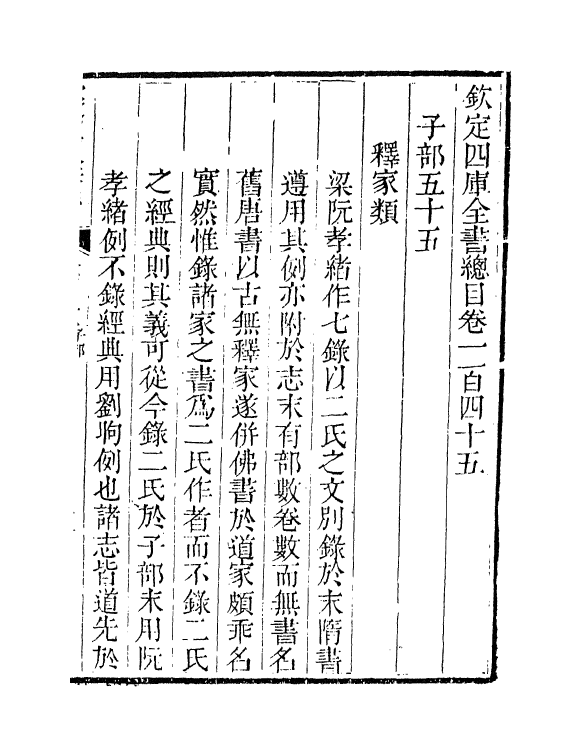 欽定四庫全書總目卷一百四十五
子部五十五
釋家類
梁阮孝緒作七錄以二氏之文別錄於末隋書
遵用其例亦附於志末有部數卷數而無書名
舊唐書以古無釋家遂併佛書於道家頗乖名
實然惟錄諸家之書爲二氏作者而不錄二氏
之經典則其義可從今錄二氏於子部末用阮
孝緒例不錄經典用劉昫例也諸志皆道先於